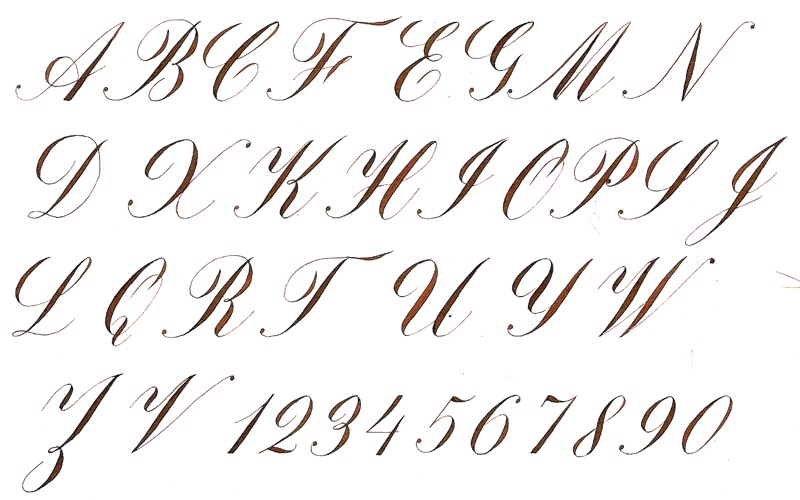 A B C F E G M N
D X K H I O P S J
L Q R T U Y W
Z V 1 2 3 4 5 6 7 8 9 0